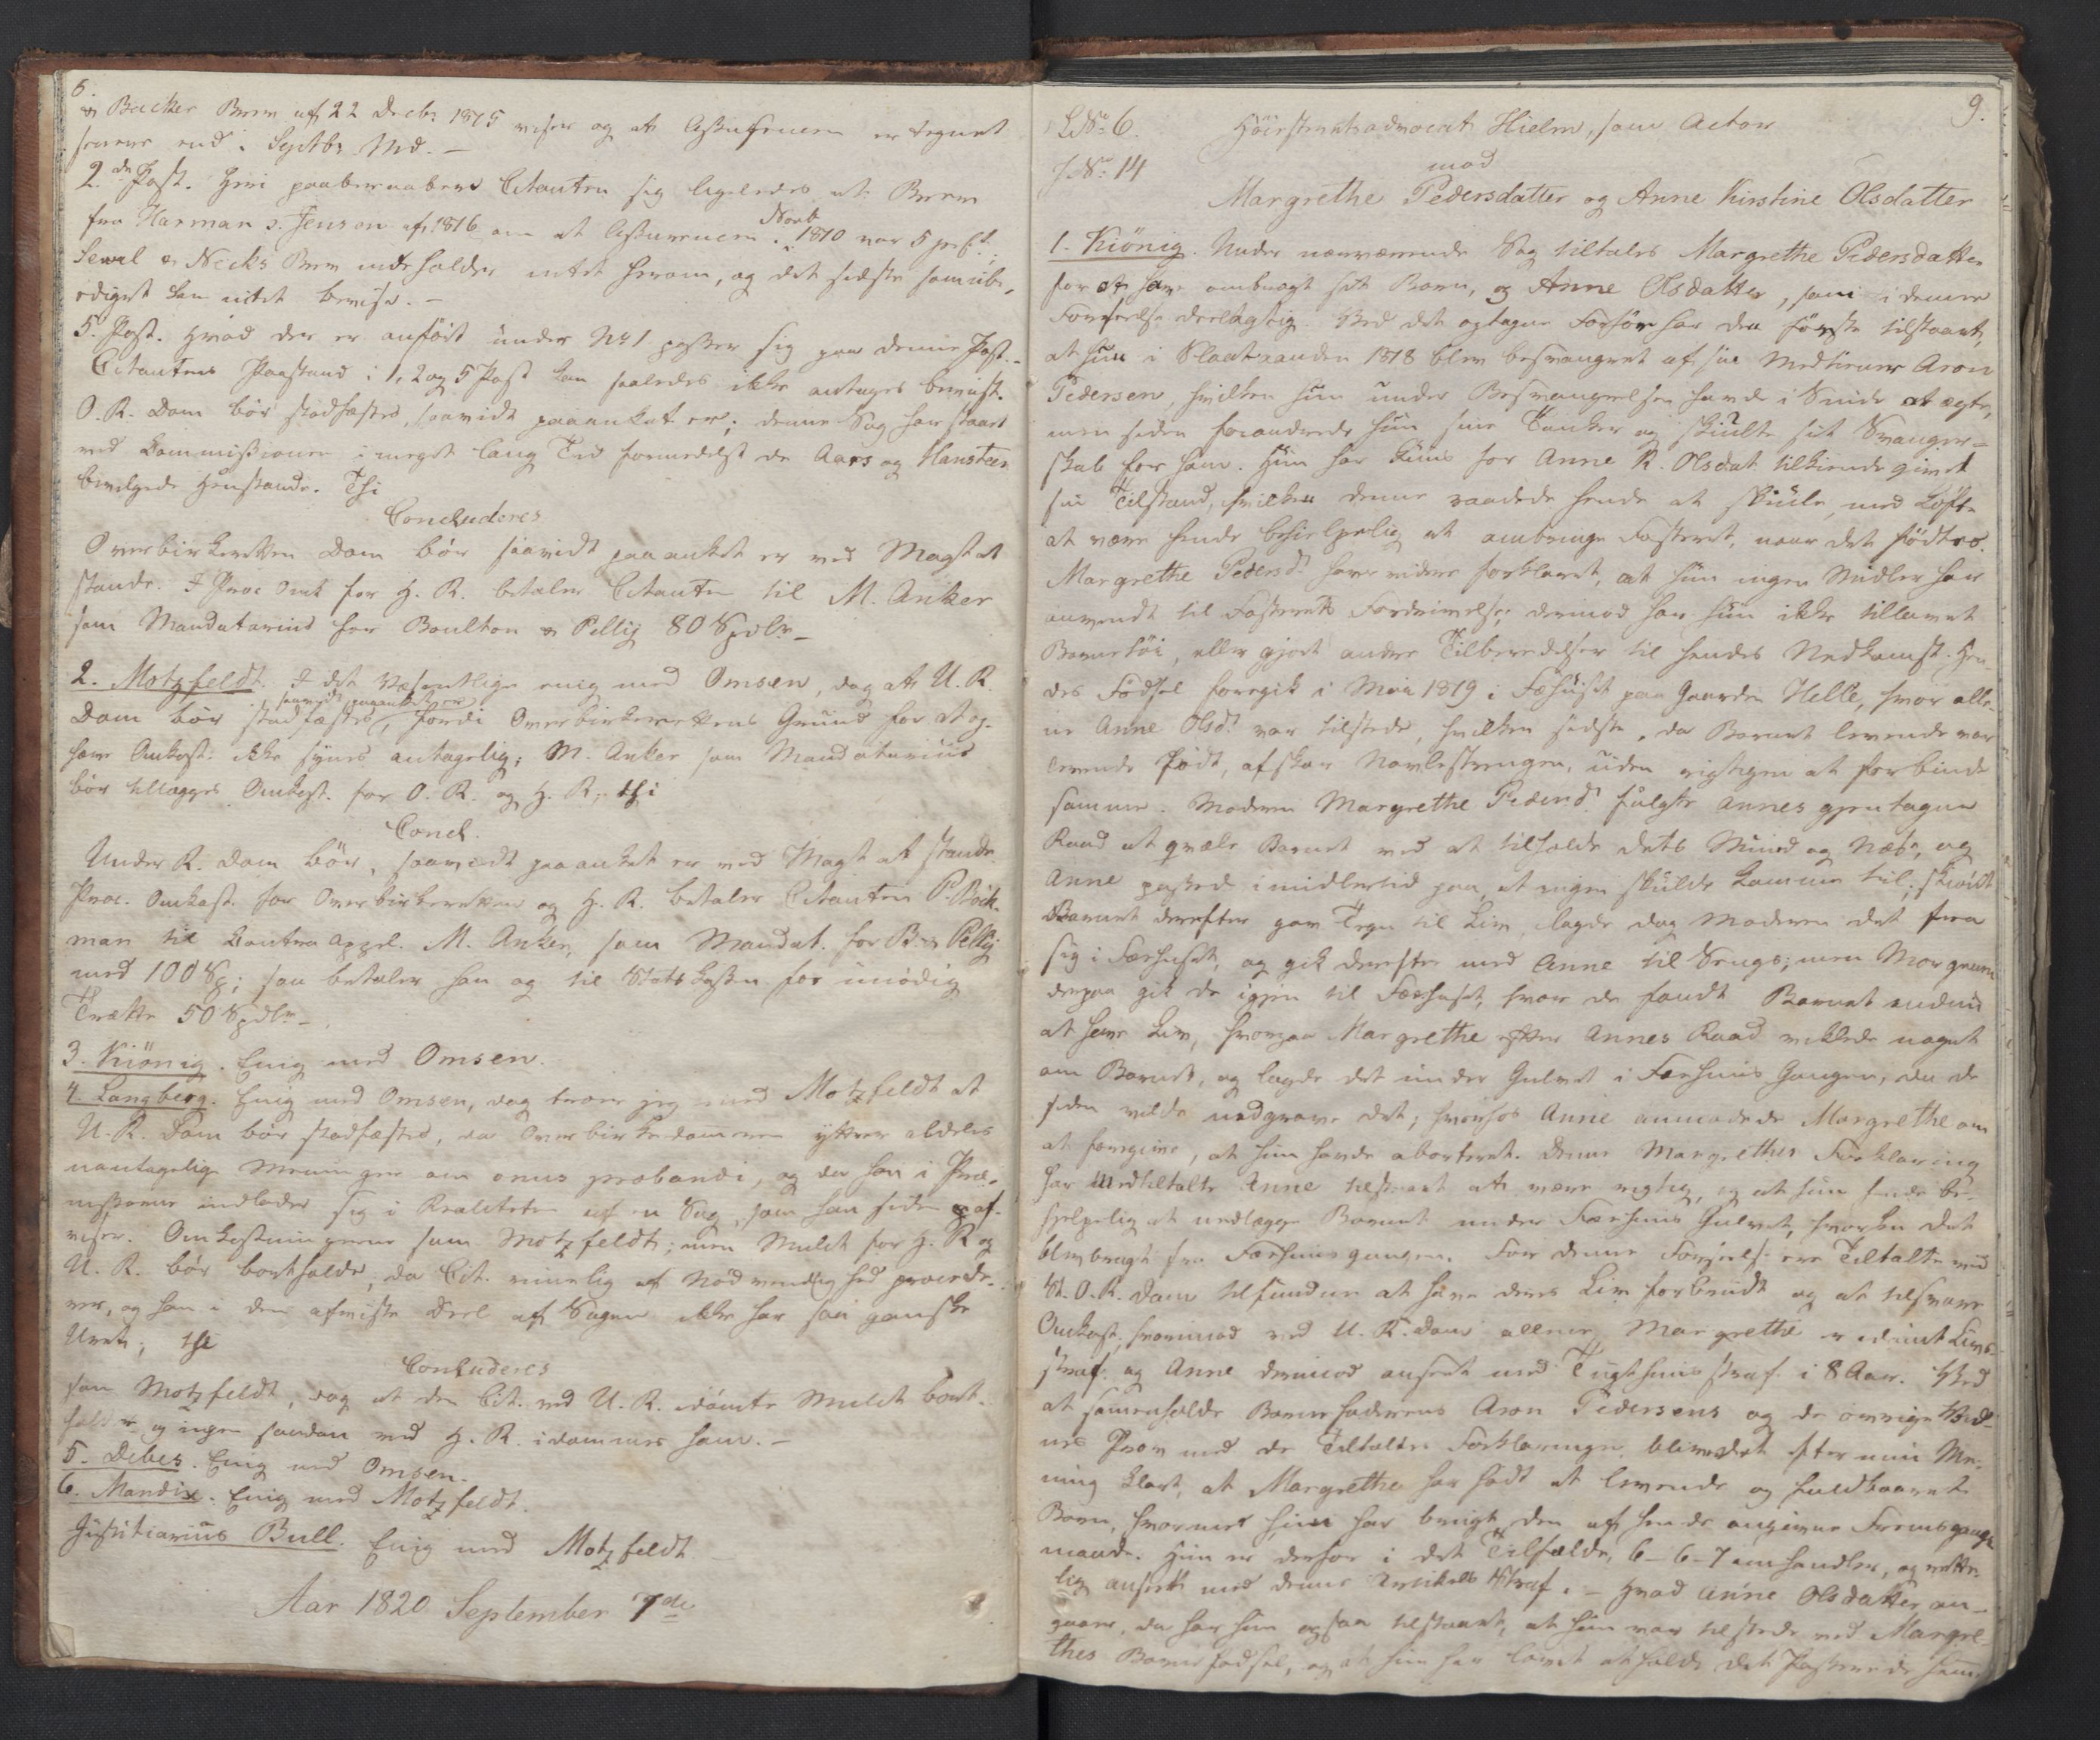 8.
& Backer Brev af 22 Decbr 1815 viser og at Assurancen er tegnet
senere end i Septbr Md. –
2.den Post. Heri paaberaaber Citanten sig ligeledes et Brev
fra Harman s. Jensen af 1816 om at Assurancen i Novbr 1810 var 5 prCt.;
Sewel & Necks Brev indeholder intet herom, og det sidste som ube-
ediget kan intet bevise. –
5. Post. Hvad der er anført under No 1 passer sig paa denne Post. –
Citantens Paastand i 1, 2 og 5 Post kan saaledes ikke antages beviist.
O. R. Dom bør stadfæstes, saavidt paaanket er; denne Sag har staaet
ved Commissionen i meget lang Tid formedelst de Aars og Hansteen
bevilgede Henstande. Thi
Concluderes
Overbirkerettens Dom bør saavidt paaanket er ved Magt at
stande. I Proc Omk for H. R. betaler Citanten til M. Anker
som Mandatarius for Boulton & Pellij 80 Spdlr –
2. Motzfeldt. I det Væsentlige enig med Omsen, dog at U. R.
Dom bør stadfæstes, saavidt paaanket er, fordi Overbirkerettens Grund for at op-
hæve Omkost: ikke synes antagelig; M. Anker som Mandatarius
bør tillægges Omkost. for O. R. og H. R., thi
Concl.
Under R. Dom bør, saavidt paaanket er ved Magt at stande.
Proc. Omkost. for Overbirkeretten og H. R. betaler Citanten P. Böck-
man til Contra Appel. M. Anker, som Mandat. for B. & Pellij
med 100 Sp; saa betaler han og til Statskassen for unødig
Trætte 50 Spdlr –
3. Kiönig. Enig med Omsen.
4. Langberg. Enig med Omsen, dog troer jeg med Motzfeldt at
U. R. Dom bør stadfæstes, da Overbirkedommeren yttrer aldeles
uantagelige Meninger om onus probandi, og da han i Præ-
misserne indlader sig i Realiteten af en Sag, som han siden af-
viser. Omkostningerne som Motzfeldt; men Mulct for H. R og
U. R. bør bortfalde, da Cit. rimelig af Nødvendighed procede-
rer, og han i den afviste Deel af Sagen ikke har saa ganske
Uret; thi
Concluderes
som Motzfeldt, dog at den Cit. ved U. R. idømte Mulct bort-
falder og ingen saadan ved H. R. idømmes ham. –
5. Debes. Enig med Omsen.
6. Mandix. Enig med Motzfeldt.
Justitiarius Bull. Enig med Motzfeldt
Aar 1820 September 7de
9.
L. No. 6. Høiesteretsadvocat Hielm, som Actor
J. No. 14 mod
Margrethe Pedersdatter og Anne Kirstine Olsdatter
1. Kiönig. Under nærværende Sag tiltales Margrethe Pedersdatter
for at have ombragt sit Barn, og Anne Olsdatter, som i denne
Forseelse deelagtig. Ved det optagne Forhør har den første tilstaaet,
at hun i Slaataanden 1818 blev besvangret af sin Medtiener Aron
Pedersen, hvilken hun under Besvangrelsen havde i Sinde at ægte,
men siden forandrede hun sine Tanker og skiulte sit Svanger-
skab for ham. Hun har kuns for Anne K. Olsdat. tilkiendegivet
sin Tilstand, hvilken denne raadede hende at skiule med Løfte
at være hende behielpelig at ombringe Fosteret, naar det fødtes.
Margrethe Pedersd. har videre forklaret, at hun ingen Midler har
anvendt til Fosterets Fordrivelse; derimod har hun ikke tillavet
Barnetøi, eller gjort andre Tilberedelser til hendes Nedkomst. Hen-
des Fødsel foregik i Mai 1819 i Fæhuset paa Gaarden Helle, hvor alle-
ne Anne Olsd. var tilstede, hvilken sidste, da Barnet levende var
levende født, afskar Navlestrengen, uden rigtigen at forbinde
samme. Moderen Margrethe Pedersd. fulgte Annes gjentagne
Raad at qvæle Barnet ved at tilholde dets Mund og Næse, og
Anne passede imidlertid paa, at ingen skulde komme til; skiøndt
Barnet derefter gav Tegn til Liv, lagde dog Moderen det fra
sig i Fæhuset, og gik derefter med Anne til Sengs; men Morgenen
derpaa gik de igjen til Fæhuset, hvor de fandt Barnet endnu
at have Liv, hvorpaa Margrethe efter Annes Raad viklede noget
om Barnet, og lagde det under Gulvet i Fæhuus Gangen, da de
siden vilde nedgrave det; hvorhos Anne anmodede Margrethe om
at foregive, at hun havde aborteret. Denne Margrethes Forklaring
har Medtiltalte Anne tilstaaet at være rigtig, og at hun hende be-
hjelpelig at nedlægge Barnet under Fæhuus Gulvet, hvorhen det
blev bragt fra Fæhuusgangen. For denne Forseelse ere Tiltalte ved
St. O. R. Dom tilfunden at have deres Liv forbrudt og at tilsvare
Omkost., hvorimod ved U. R. Dom allene Margrethe er idømt Livs-
straf og Anne derimod anseet med Tugthuusstraf i 8 Aar. Ved
at sammenholde Barnefaderens Aron Pedersens og de øvrige Vid-
nes Prov med de Tiltaltes Forklaringer bliver det efter min Me-
ning klart, at Margrethe har født et levende og fuldbaaret
Barn, hvormed hun har brugt den af hende angivne Fremgangs-
maade. Hun er derfor i det Tilfælde, 6–6–7 omhandler, og rette-
lig anseet med denne Artikels Straf. – Hvad Anne Olsdatter an-
gaaer, da har hun ogsaa tilstaaet, at hun var tilstede ved Margre-
thes Barnefødsel, og at hun har lovet at holde det Passerede hem-